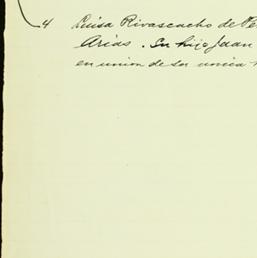 4 Luisa Rivascacho de Pe
Arias. Su hijo Juan
en union de su unica